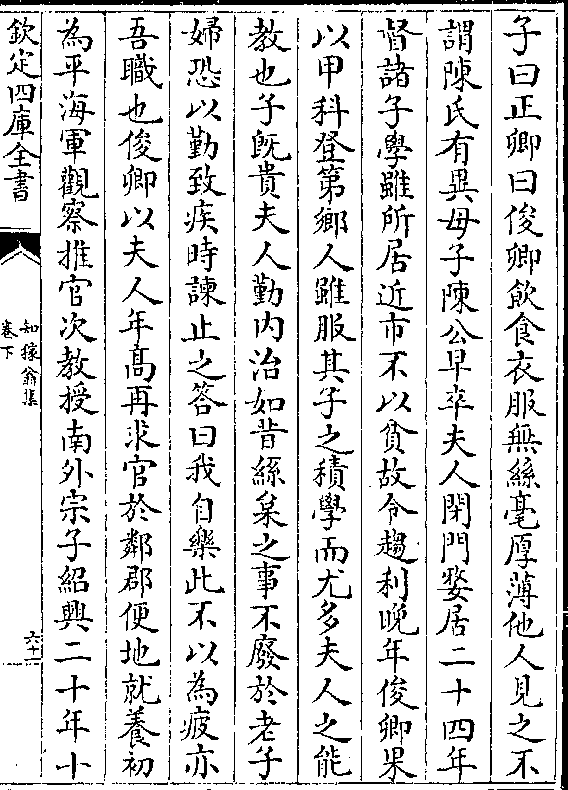 子曰正卿曰俊卿飲食衣服無絲毫厚薄他人見之不
謂陳氏有異母子陳公早卒夫人閉門嫠居二十四年
督諸子學雖所居近市不以貧故令趨利晚年俊卿果
以甲科登第鄉人雖服其子之積學而尤多夫人之能
教也子既貴夫人勤内治如昔絲枲之事不廢於老子
婦恐以勤致疾時諫止之答曰我自樂此不以為疲亦
吾職也俊卿以夫人年髙再求官於鄰郡便地就養初
為平海軍觀察推官次教授南外宗子紹興二十年十
欽定四庫全書
知稼翁集
卷下
六十一